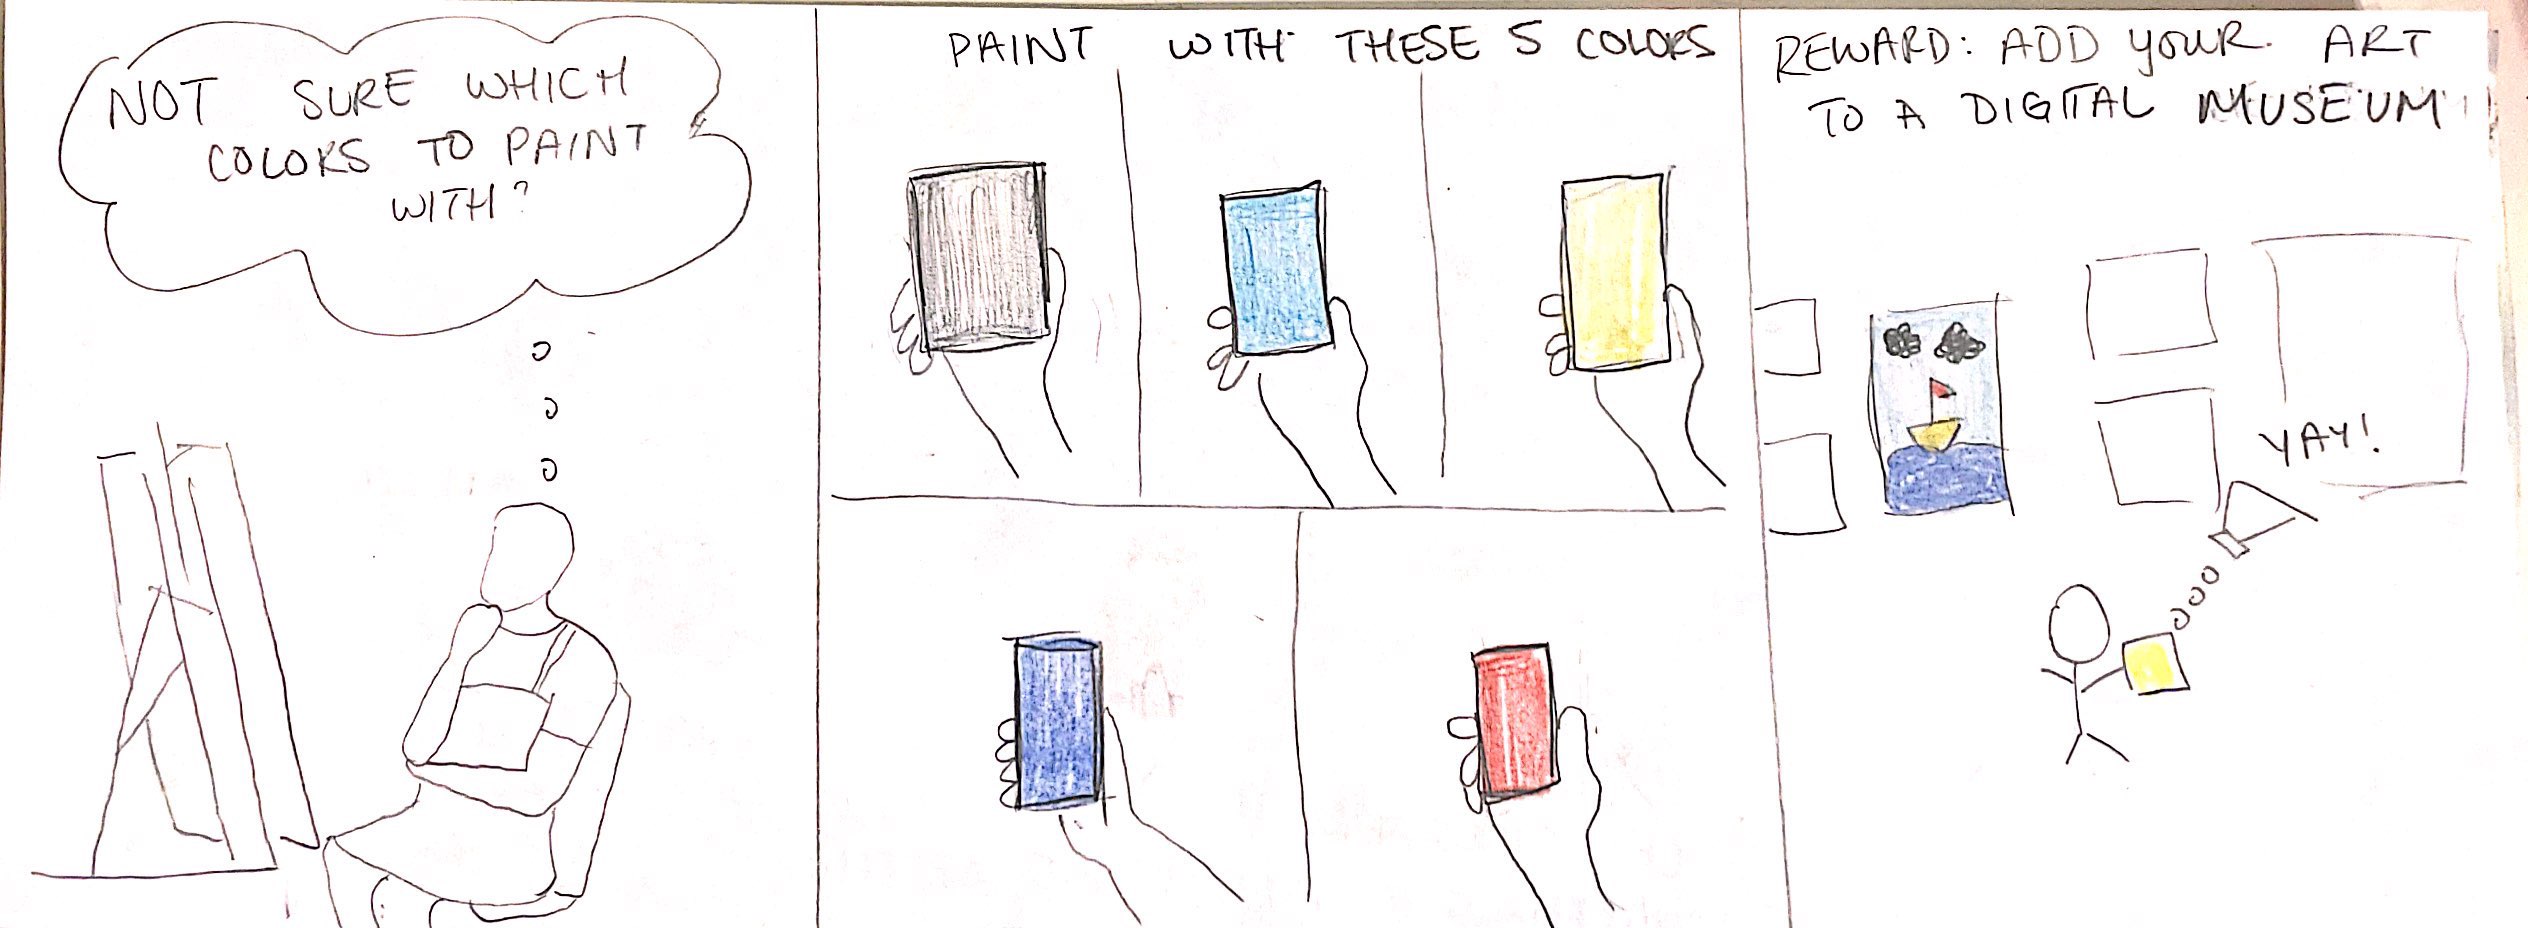 NOT SURE WHICH
COLORS TO PAINT
WITH?
PAINT WITH THESE 5 COLORS
REWARD: ADD YOUR ART
TO A DIGITAL MUSEUM
YAY!